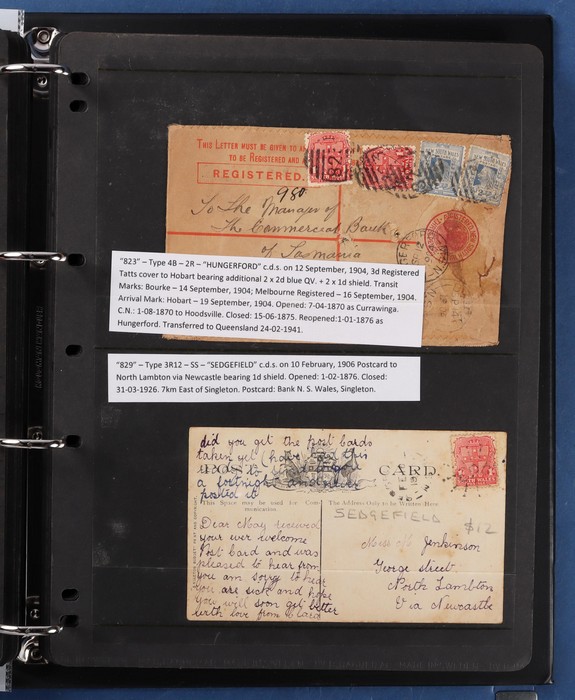 THIS LETTER MUST BE GIVEN TO AN
TO BE REGISTERED AND
REGISTERED.
980
To The Manager of
The Commercial Bank
of Tasmania
"823" – Type 4B – 2R – "HUNGERFORD" c.d.s. on 12 September, 1904, 3d Registered
Tatts cover to Hobart bearing additional 2 x 2d blue QV. + 2 x 1d shield. Transit
Marks: Bourke – 14 September, 1904; Melbourne Registered – 16 September, 1904.
Arrival Mark: Hobart – 19 September, 1904. Opened: 7-04-1870 as Currawinga.
C.N.: 1-08-1870 to Hoodsville. Closed: 15-06-1875. Reopened:1-01-1876 as
Hungerford. Transferred to Queensland 24-02-1941.
"829" – Type 3R12 – SS – "SEDGEFIELD" c.d.s. on 10 February, 1906 Postcard to
North Lambton via Newcastle bearing 1d shield. Opened: 1-02-1876. Closed:
31-03-1926. 7km East of Singleton. Postcard: Bank N. S. Wales, Singleton.
did you get the post cards
taken yet I have had this
a fortnight and never
posted it
CARD.
This Space may be used for Com-
munication.
The Address Only to be Written Here.
SEDGEFIELD
$12
Dear May received
your ever welcome
Post Card and was
pleased to hear from
you am sorry to hear
you are sick and hope
you will soon get better
with love from
Miss M Jenkinson
George street
North Lambton
Via Newcastle